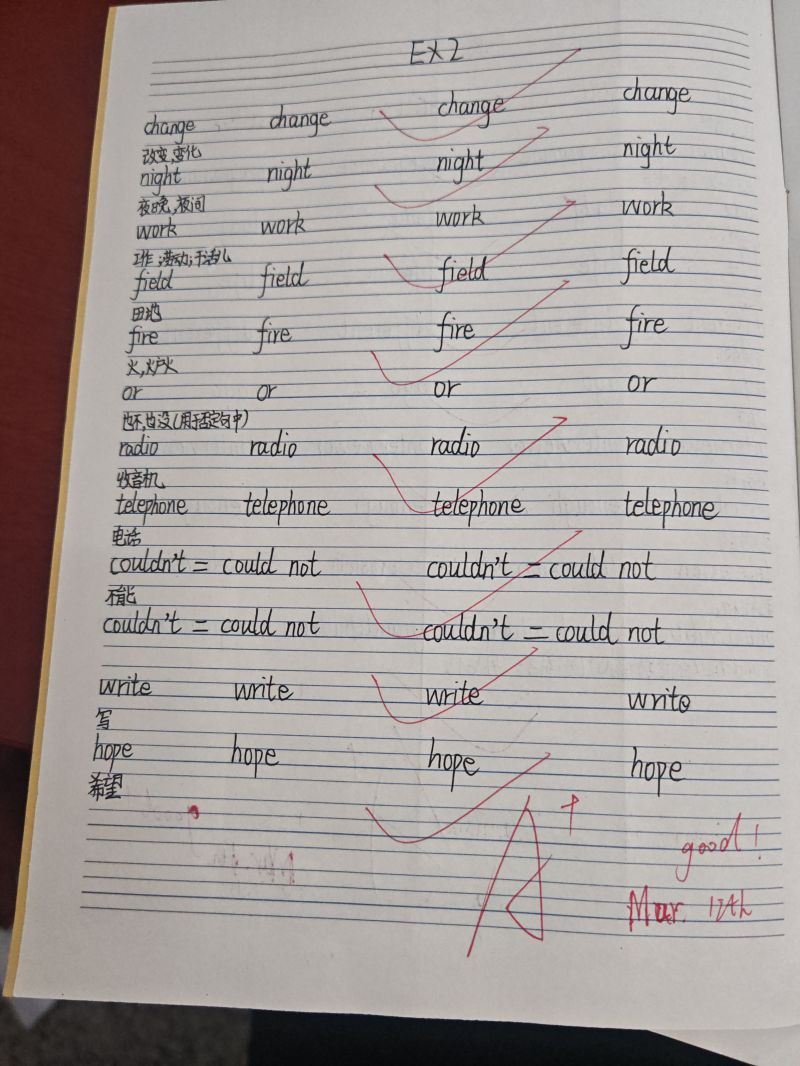 EX2
change change change change
改变,变化
night night night night
夜晚,夜间
work work work work
工作;劳动;干活儿
field field field field
田地
fire fire fire fire
火,炉火
or or or or
也不,也没(用于否定句中)
radio radio radio radio
收音机
telephone telephone telephone telephone
电话
couldn't = could not couldn't = could not
不能
couldn't = could not couldn't = could not
write write write write
写
hope hope hope hope
希望
A+
good!
Mar. 12th